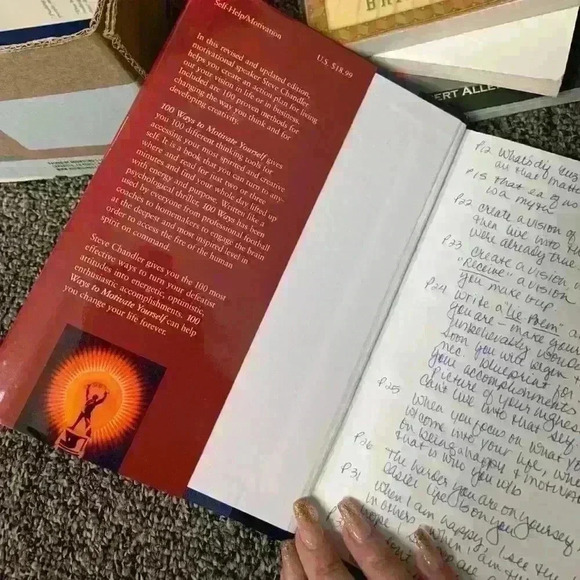 Self-Help/Motivation
U.S. $18.99
In this revised and updated edition,
motivational speaker Steve Chandler
helps you create an action plan for living
out your vision in life or in business.
Included are 100 proven methods for
changing the way you think and for
developing creativity.
100 Ways to Motivate Yourself gives
you 100 different thinking tools for
accessing your most spirited and creative
self. It is a book that you can turn to any-
where and read for just two or three
minutes and find your whole day fired up
with energy and purpose. Written like a
psychological thriller, 100 Ways has been
used by everyone from professional football
coaches to homemakers to engage the brain
at the deepest and most inspired level in
order to access the fire of the human
spirit on command.
Steve Chandler gives you the 100 most
effective ways to turn your defeatist
attitudes into energetic, optimistic,
enthusiastic accomplishments. 100
Ways to Motivate Yourself can help
you change your life forever.
ERT ALLE
P.12
P.15 that
is a myth
P.22 create a vision of
then live into the
were already true
P.23 create a vision
"Receive" a vision
you make it up
P.24 Write a "lie Poem"
you are - make yours
unbelievably
soon you will
blueprint for
your accomplishments
picture of your highest
Can't live into that self
P.25 When you focus on what you
welcome into your life,
on being happy & motiva
that is who you will b
P.26 The harder you are on yourself
easier life is on you
P.31 When I am happy I see the
in others